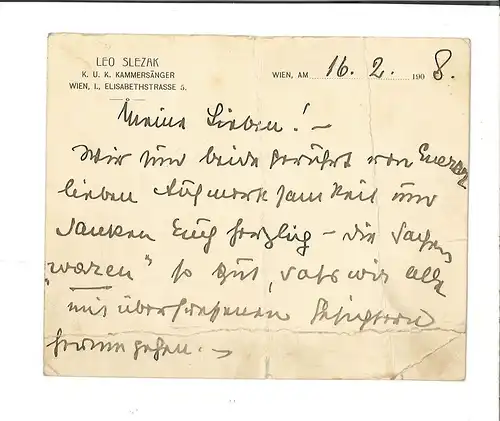 LEO SLEZAK
K. U. K. KAMMERSÄNGER
WIEN, I., ELISABETHSTRASSE 5.
WIEN, AM 16. 2. 190 8.
Meine Lieben! –
Wir sind beide gerührt von Euerer
lieben Aufmerksamkeit und
danken Euch herzlich – die Sachen
"waren" so gut, dass wir alle
mit überfressenen Gesichtern
herumgehen. –